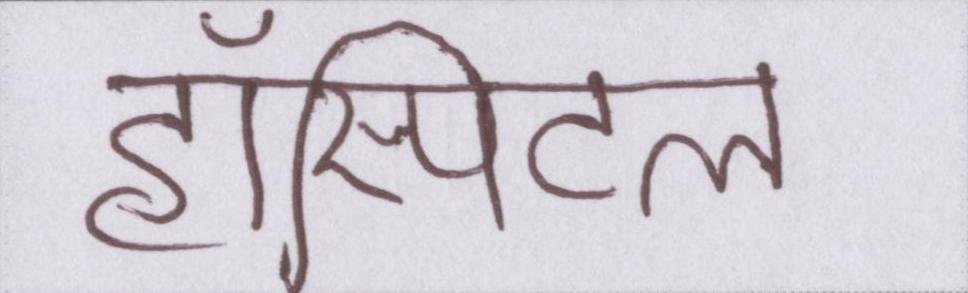 हॉस्पिटल